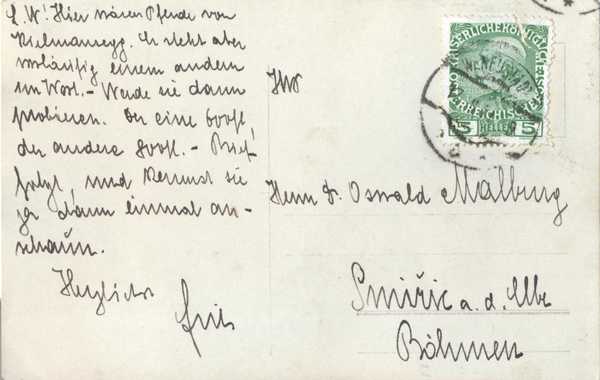 L. W! Hier wären Pferde von
Kielmannsegg. Er steht aber
vorläufig einem andern
im Wort. - Werde sie dann
probieren. Der eine 600 fl,
der andere 800 fl. - Brief
folgt, und kannst sie
ja dann einmal an-
schaun.
Herzlichst
Fritz
KAISERLICHE KÖNIGLICHE
ÖSTERREICHISCHE
5 HELLER 5
Herrn Dr. Oswald
Smiřic a. d. Elbe
Böhmen